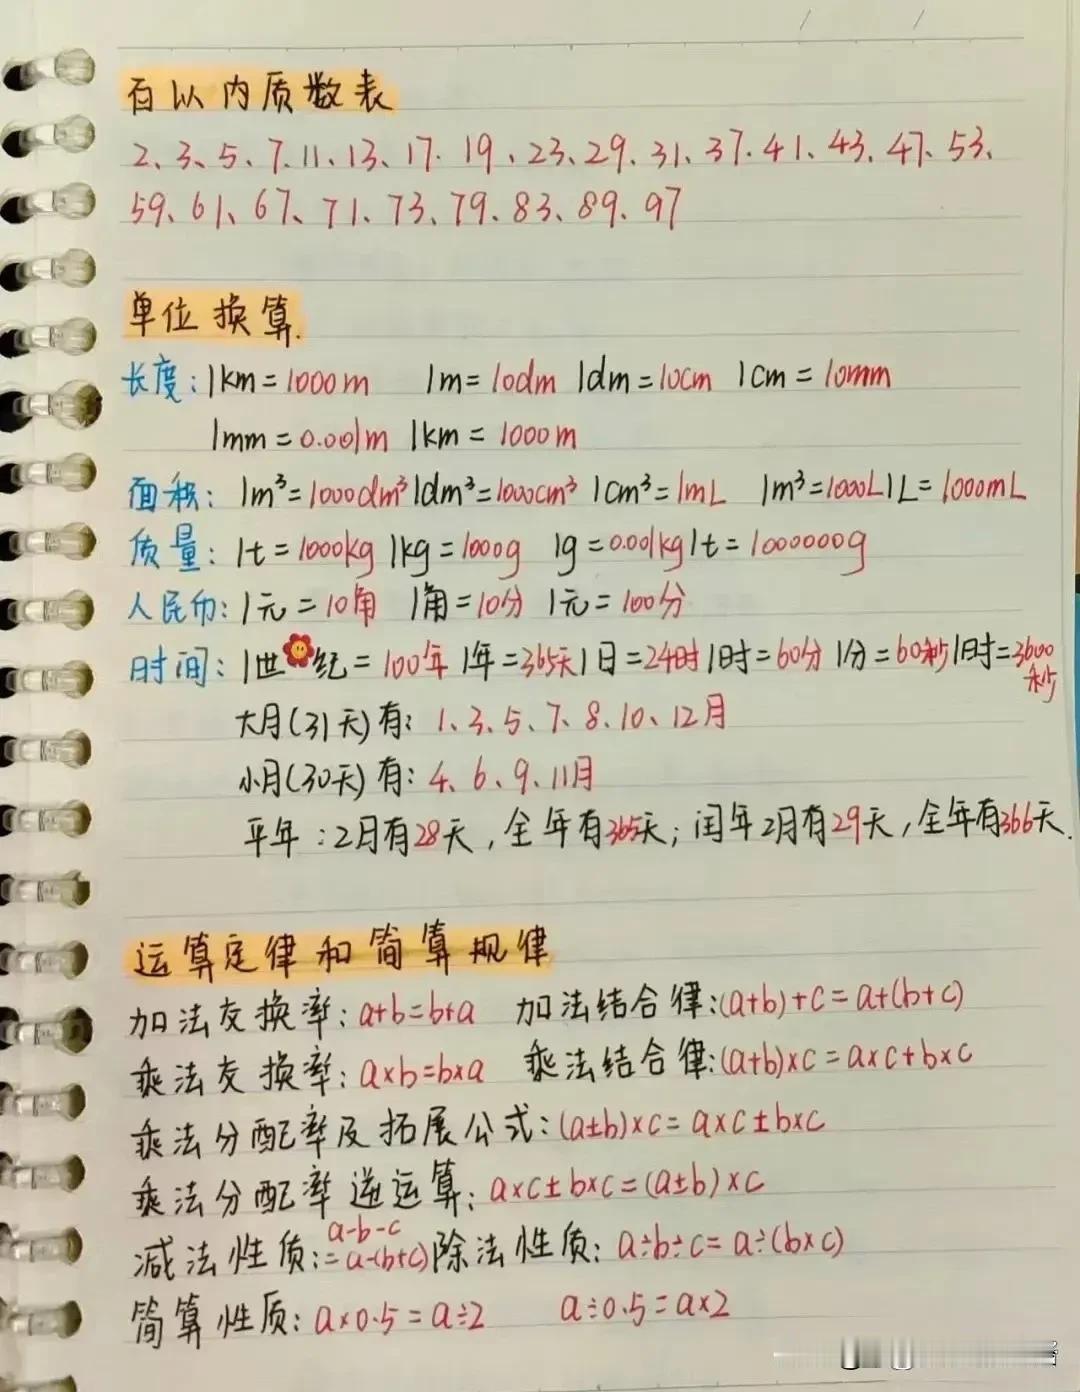 百以内质数表
2、3、5、7、11、13、17、19、23、29、31、37、41、43、47、53、
59、61、67、71、73、79、83、89、97
单位换算
长度:1km=1000m 1m=10dm 1dm=10cm 1cm=10mm
1mm=0.001m 1km=1000m
面积:1m³=1000dm³ 1dm³=1000cm³ 1cm³=1mL 1m³=1000L 1L=1000mL
质量:1t=1000kg 1kg=1000g 1g=0.001kg 1t=1000000g
人民币:1元=10角 1角=10分 1元=100分
时间:1世纪=100年 1年=365天 1日=24时 1时=60分 1分=60秒 1时=3600秒
大月(31天)有:1、3、5、7、8、10、12月
小月(30天)有:4、6、9、11月
平年:2月有28天,全年有365天;闰年2月有29天,全年有366天.
运算定律和简算规律
加法交换率:a+b=b+a 加法结合律:(a+b)+c=a+(b+c)
乘法交换率:a×b=b×a 乘法结合律:(a+b)×c=a×c+b×c
乘法分配率及拓展公式:(a±b)×c=a×c±b×c
乘法分配率逆运算:a×c±b×c=(a±b)×c
减法性质:a-b-c=a-(b+c) 除法性质:a÷b÷c=a÷(b×c)
简算性质:a×0.5=a÷2 a÷0.5=a×2